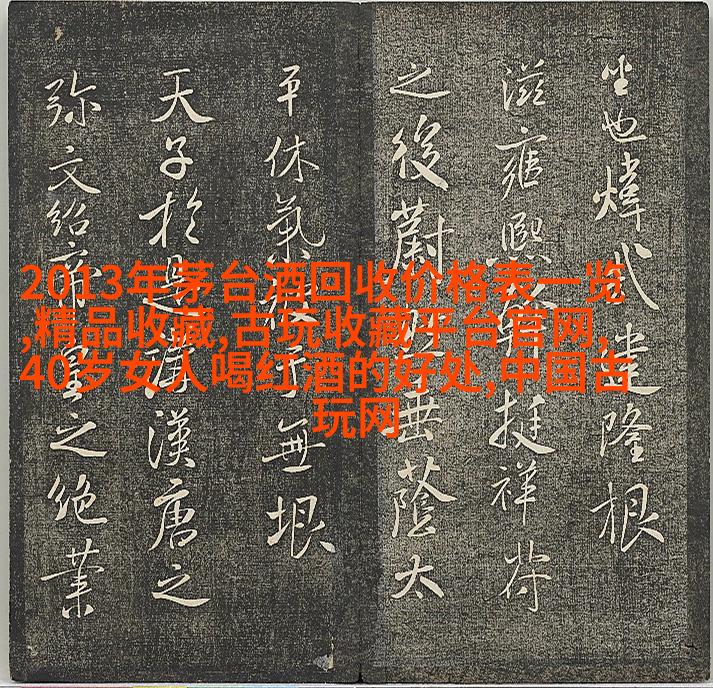 2013年茅台酒回收价格表一览
,精品收藏,古玩收藏平台官网,
40岁女人喝红酒的好处,中国古
玩网
也煒建隆根
滋雍熙挺祥符
之後蔚垂蔭太
平休氣無垠
天子於是漢唐之
弥文紹帝皇之絶業